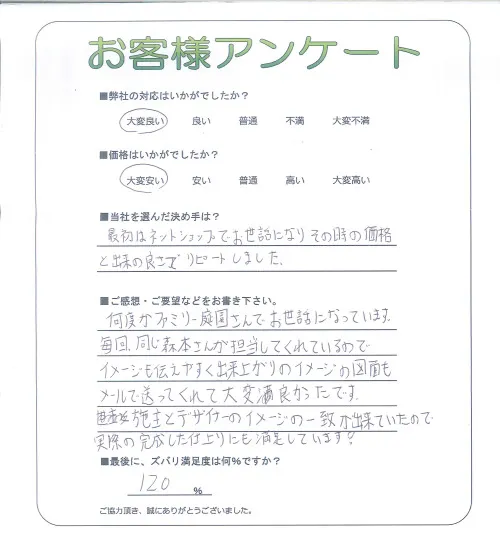 お客様アンケート
■弊社の対応はいかがでしたか？
大変良い 良い 普通 不満 大変不満
■価格はいかがでしたか？
大変安い 安い 普通 高い 大変高い
■当社を選んだ決め手は？
最初はネットショップでお世話になりその時の価格
と出来の良さでリピートしました。
■ご感想・ご要望などをお書き下さい。
何度かファミリー庭園さんでお世話になっています。
毎回、同じ森本さんが担当してくれているので
イメージも伝えやすく出来上がりのイメージの図面も
メールで送ってくれて大変満良かったです。
施主とデザイナーのイメージの一致が出来ていたので
実際の完成した仕上りにも満足しています？
■最後に、ズバリ満足度は何％ですか？
120 %
ご協力頂き、誠にありがとうございました。